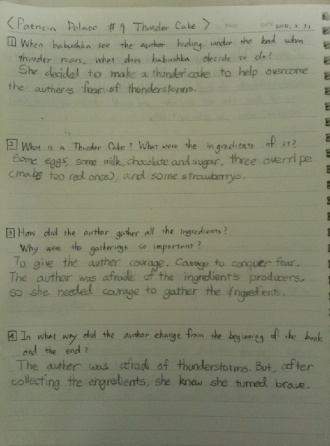 < Patricia Polaco # 9 Thunder Cake >
1 When babushka see the author hiding under the bed when
thunder roars, what does babushka decide to do?
She decided to make a thunder cake to help overcome
the author's fear of thunderstorms.
2 What is a Thunder Cake? What were the ingredients of it?
Some eggs, some milk, chocolate and sugar, three overripe
(mabe too red ones), and some strawberrys.
3 How did the author gather all the ingredients?
Why were the gatherings so important?
To give the author courage. Courage to conquer fear.
The author was afraide of the ingredients producers,
so she needed courage to gather the ingredients.
4 In what way did the author change from the beginning of the book
and the end?
The author was afraid of thunderstorms. But, after
collecting the engredients, she knew she turned brave.